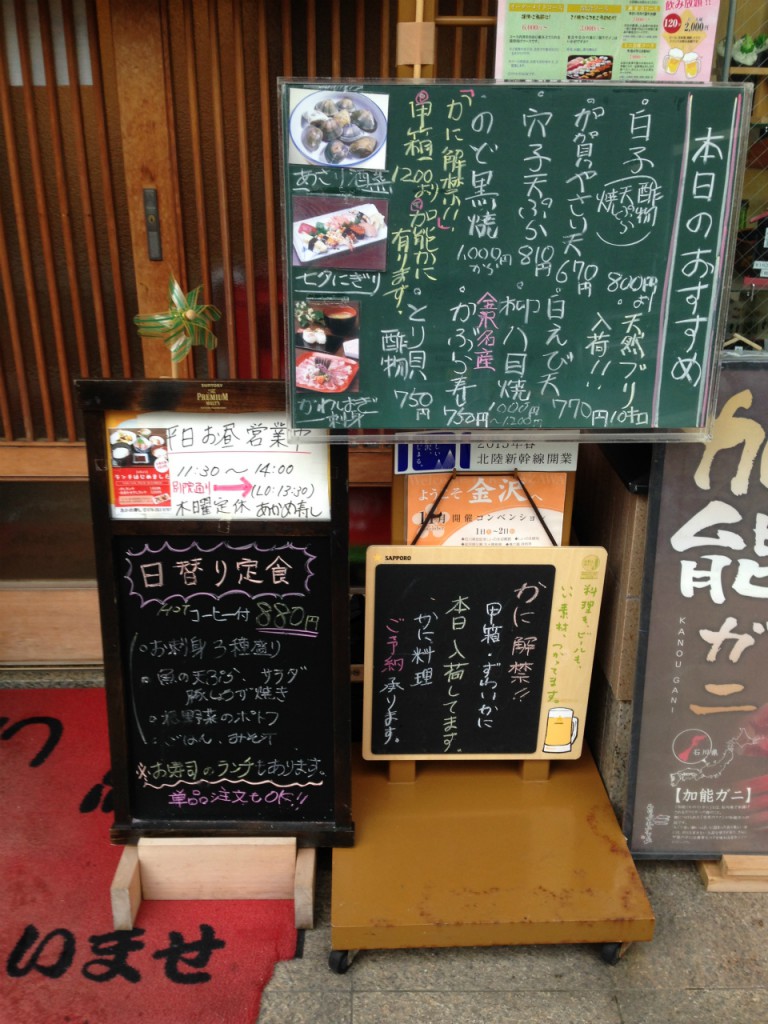 飲み放題!!
120分
2,000円
本日のおすすめ
・白子(酢物 天ぷら 焼)800円より
・天然ブリ入荷!! 10キロ
・加賀やさい天 670円
・穴子天ぷら 810円
・白えび天 770円
・のど黒焼 1,000円から
・柳八目焼 1000円〜1200円
金沢名産
・かぶら寿し 750円
「かに解禁!!」
甲箱 1200より
加能がに有ります。
・とり貝酢物 750円
あさり酒蒸
七夕にぎり
かわしおぎ刺身
SAPPORO
PREMIUM
平日お昼営業中
11:30〜14:00
(LO:13:30)
木曜定休 あかめ寿し
ランチはじめました
日替り定食
Hot コーヒー付 880円
・お刺身3種盛り
・魚の天ぷら、サラダ
豚しょうが焼き
・根野菜のポトフ
・ごはん、みそ汁
※お寿司のランチもあります。
単品注文もOK!!
2015年春
北陸新幹線開業
ようこそ金沢へ
11月開催コンベンション
1日〜2日
SAPPORO
料理も、ビールも、
いい素材、つかってます。
かに解禁!!
甲箱・ずわいかに
本日入荷してます。
・かに料理
ご予約承ります。
加能ガニ
KANOU GANI
石川県
【加能ガニ】
いませ